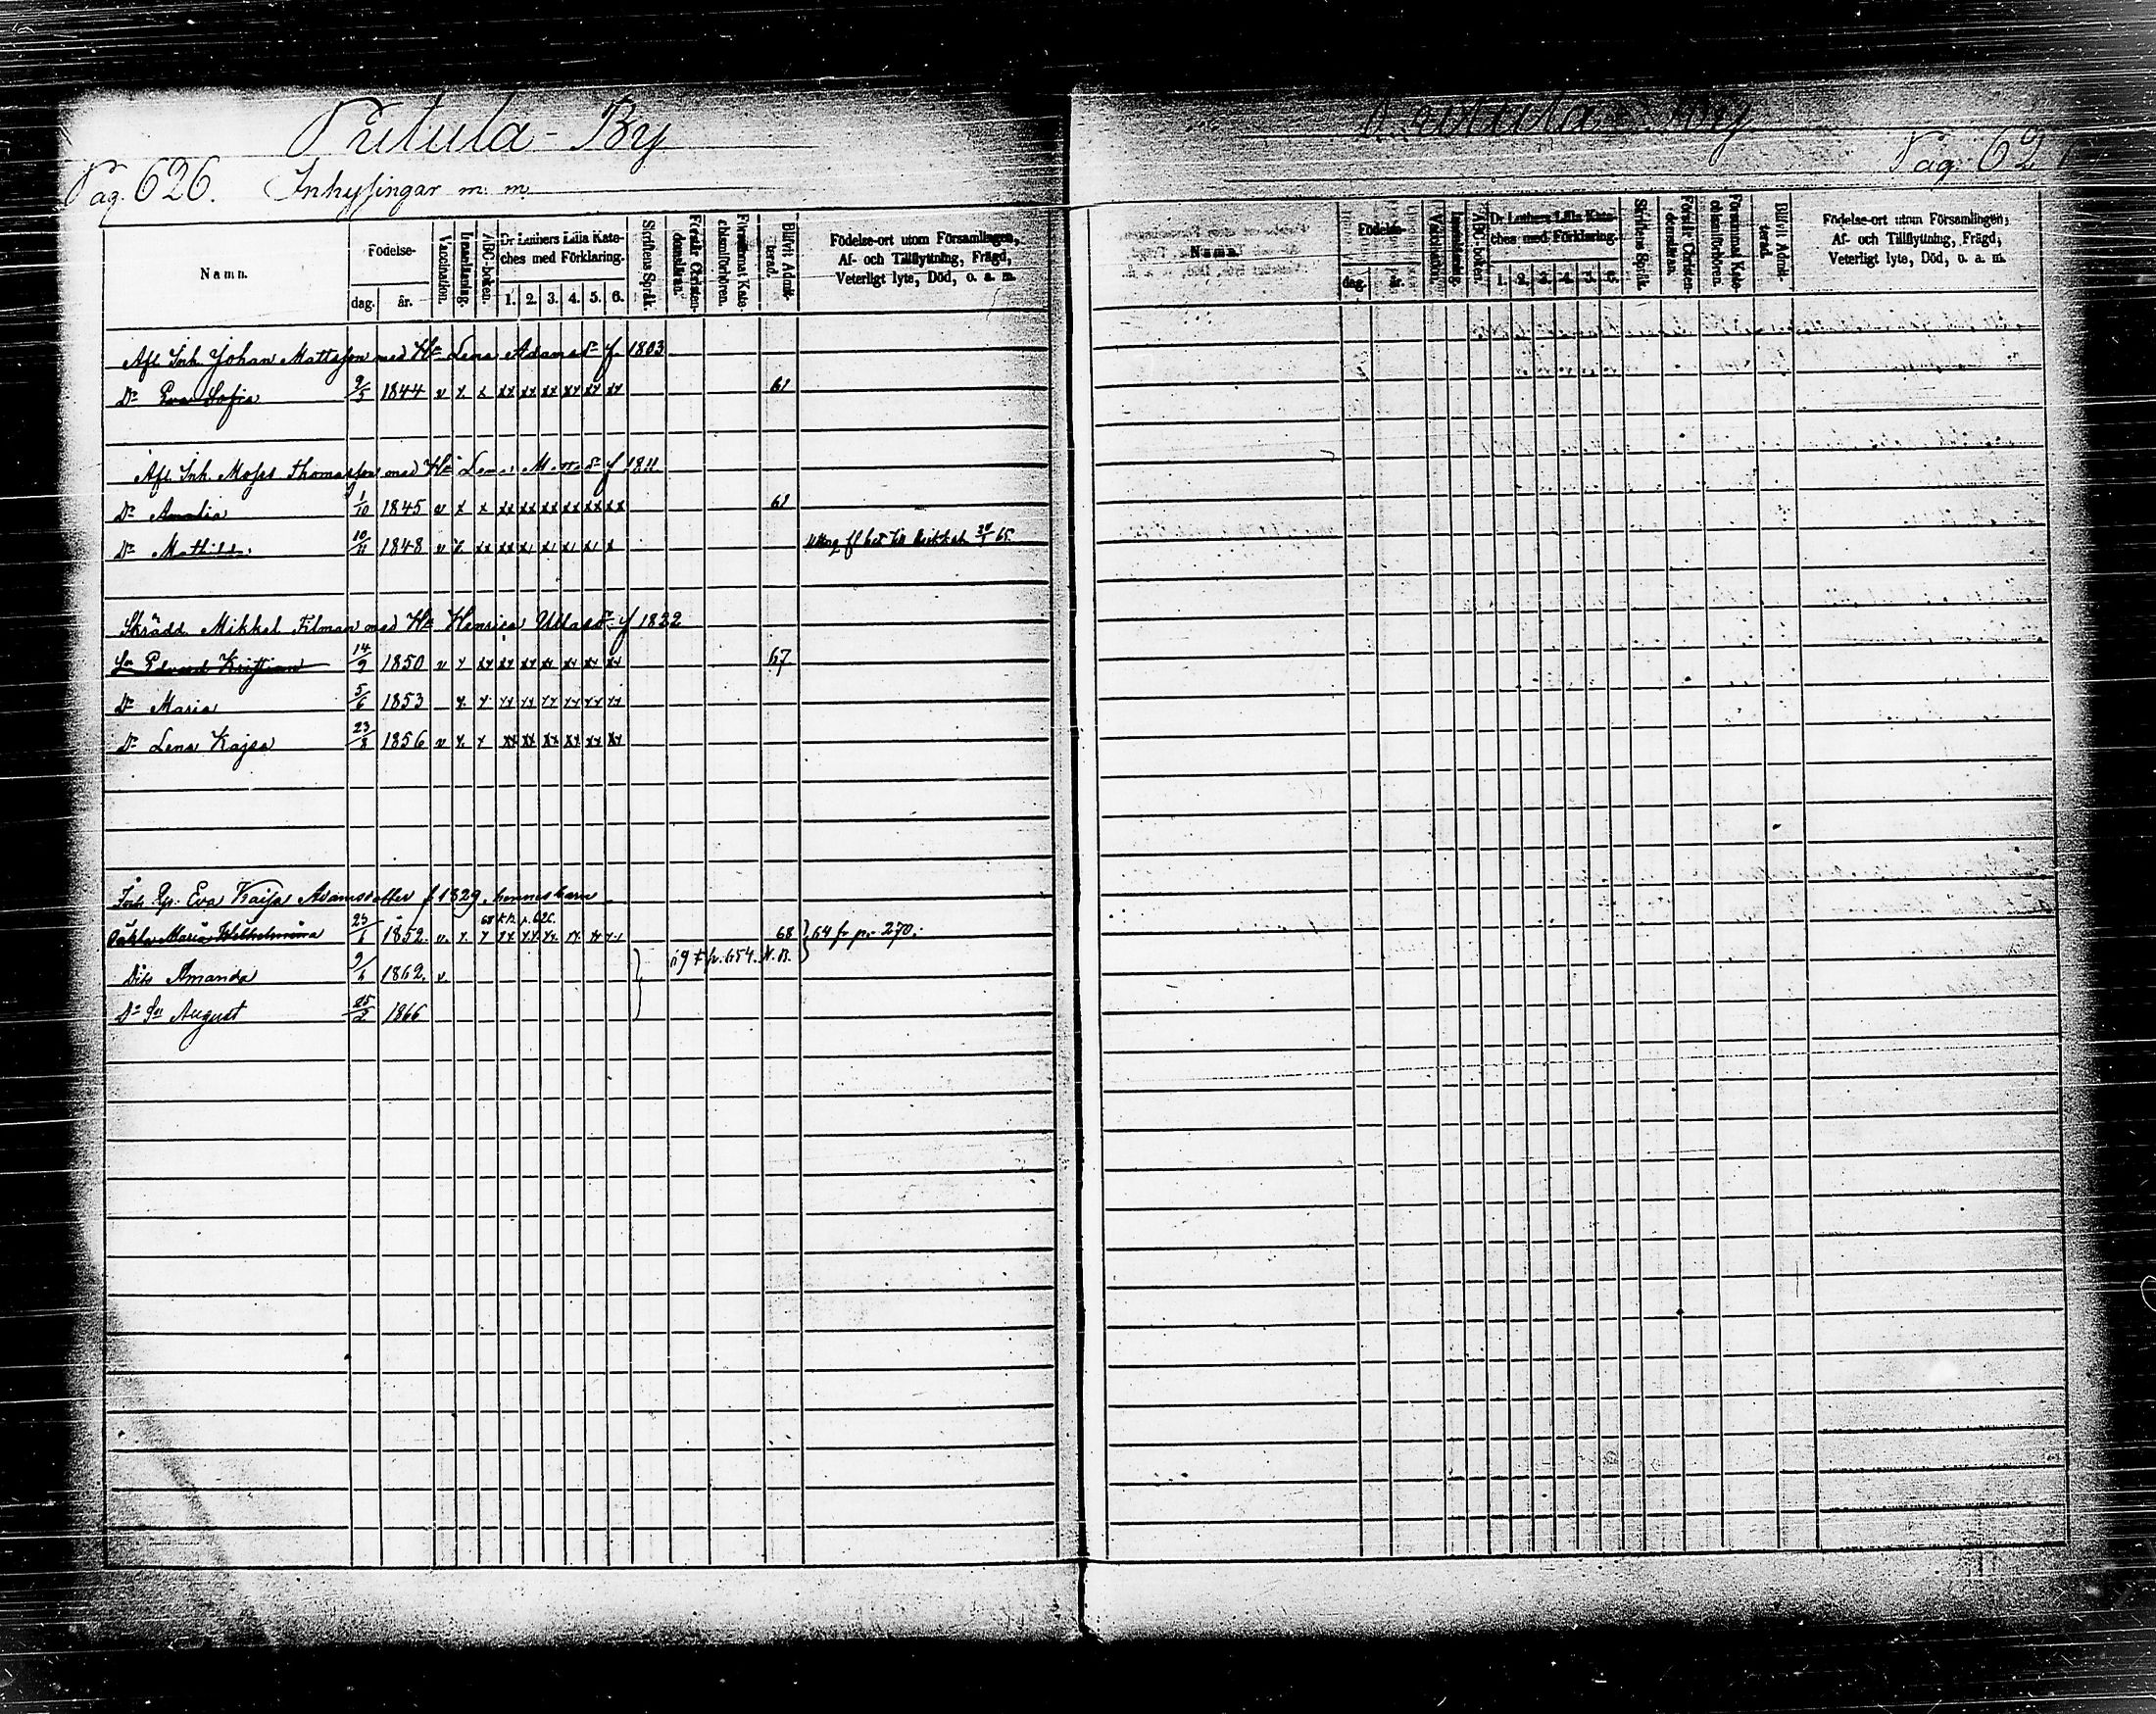 Pritula - By
Pag. 626. Inhysingar m. m.
Namn. Födelse- dag. år. Vaccination. Innanläsning. ABC-boken. Dr Luthers Lilla Kateches med Förklaring. 1. 2. 3. 4. 5. 6. Skriftens Språk. Förstår Christendomsläran. Försummat Katechismiförhören. Blifvit Admitterad. Födelse-ort utom Församlingen, Af- och Tillflyttning, Frägd, Veterligt lyte, Död, o. a. m.
Afl. Inh. Johan Mattsson med Hu Lena Adamsdr f. 1803
Dr Eva Sofia 9/5 1844 v x x xx xx xx xx xx xx 61
Afl. Inh. Moses Thomasson med Hu Lena dr f 1811
Dr Amalia 1/10 1845 v x x xx xx xx xx xx xx 61
Dr Mathilda 10/11 1848 v x xx xx x x x x x 65.
Skrädd. Mikkel Filman med Hu Henrica dr f 1822
Son Edvard Kristian 14/9 1850 v x xx xx xx xx xx xx xx 67
Dr Maria 5/6 1853 x x xx xx xx xx xx xx
Dr Lena Kajsa 23/8 1856 v x x xx xx xx xx xx xx
Inh. Eva Kajsa Adamsdotter f 1829, hennes barn
68 p. 626.
Oäkta Maria Wilhelmina 23/6 1852. v. x x xx xx xx xx xx xx 68 64 fr p. 270.
69 p. 654. N. B.
Dito Amanda 9/6 1862. v.
Dr Son August 25/2 1866
By
Pag. 62
Namn. Födelse- dag. år. Vaccination. Innanläsning. ABC-boken. Dr Luthers Lilla Kateches med Förklaring. 1. 2. 3. 4. 5. 6. Skriftens Språk. Förstår Christendomsläran. Försummat Katechismiförhören. Blifvit Admitterad. Födelse-ort utom Församlingen, Af- och Tillflyttning, Frägd, Veterligt lyte, Död, o. a. m.